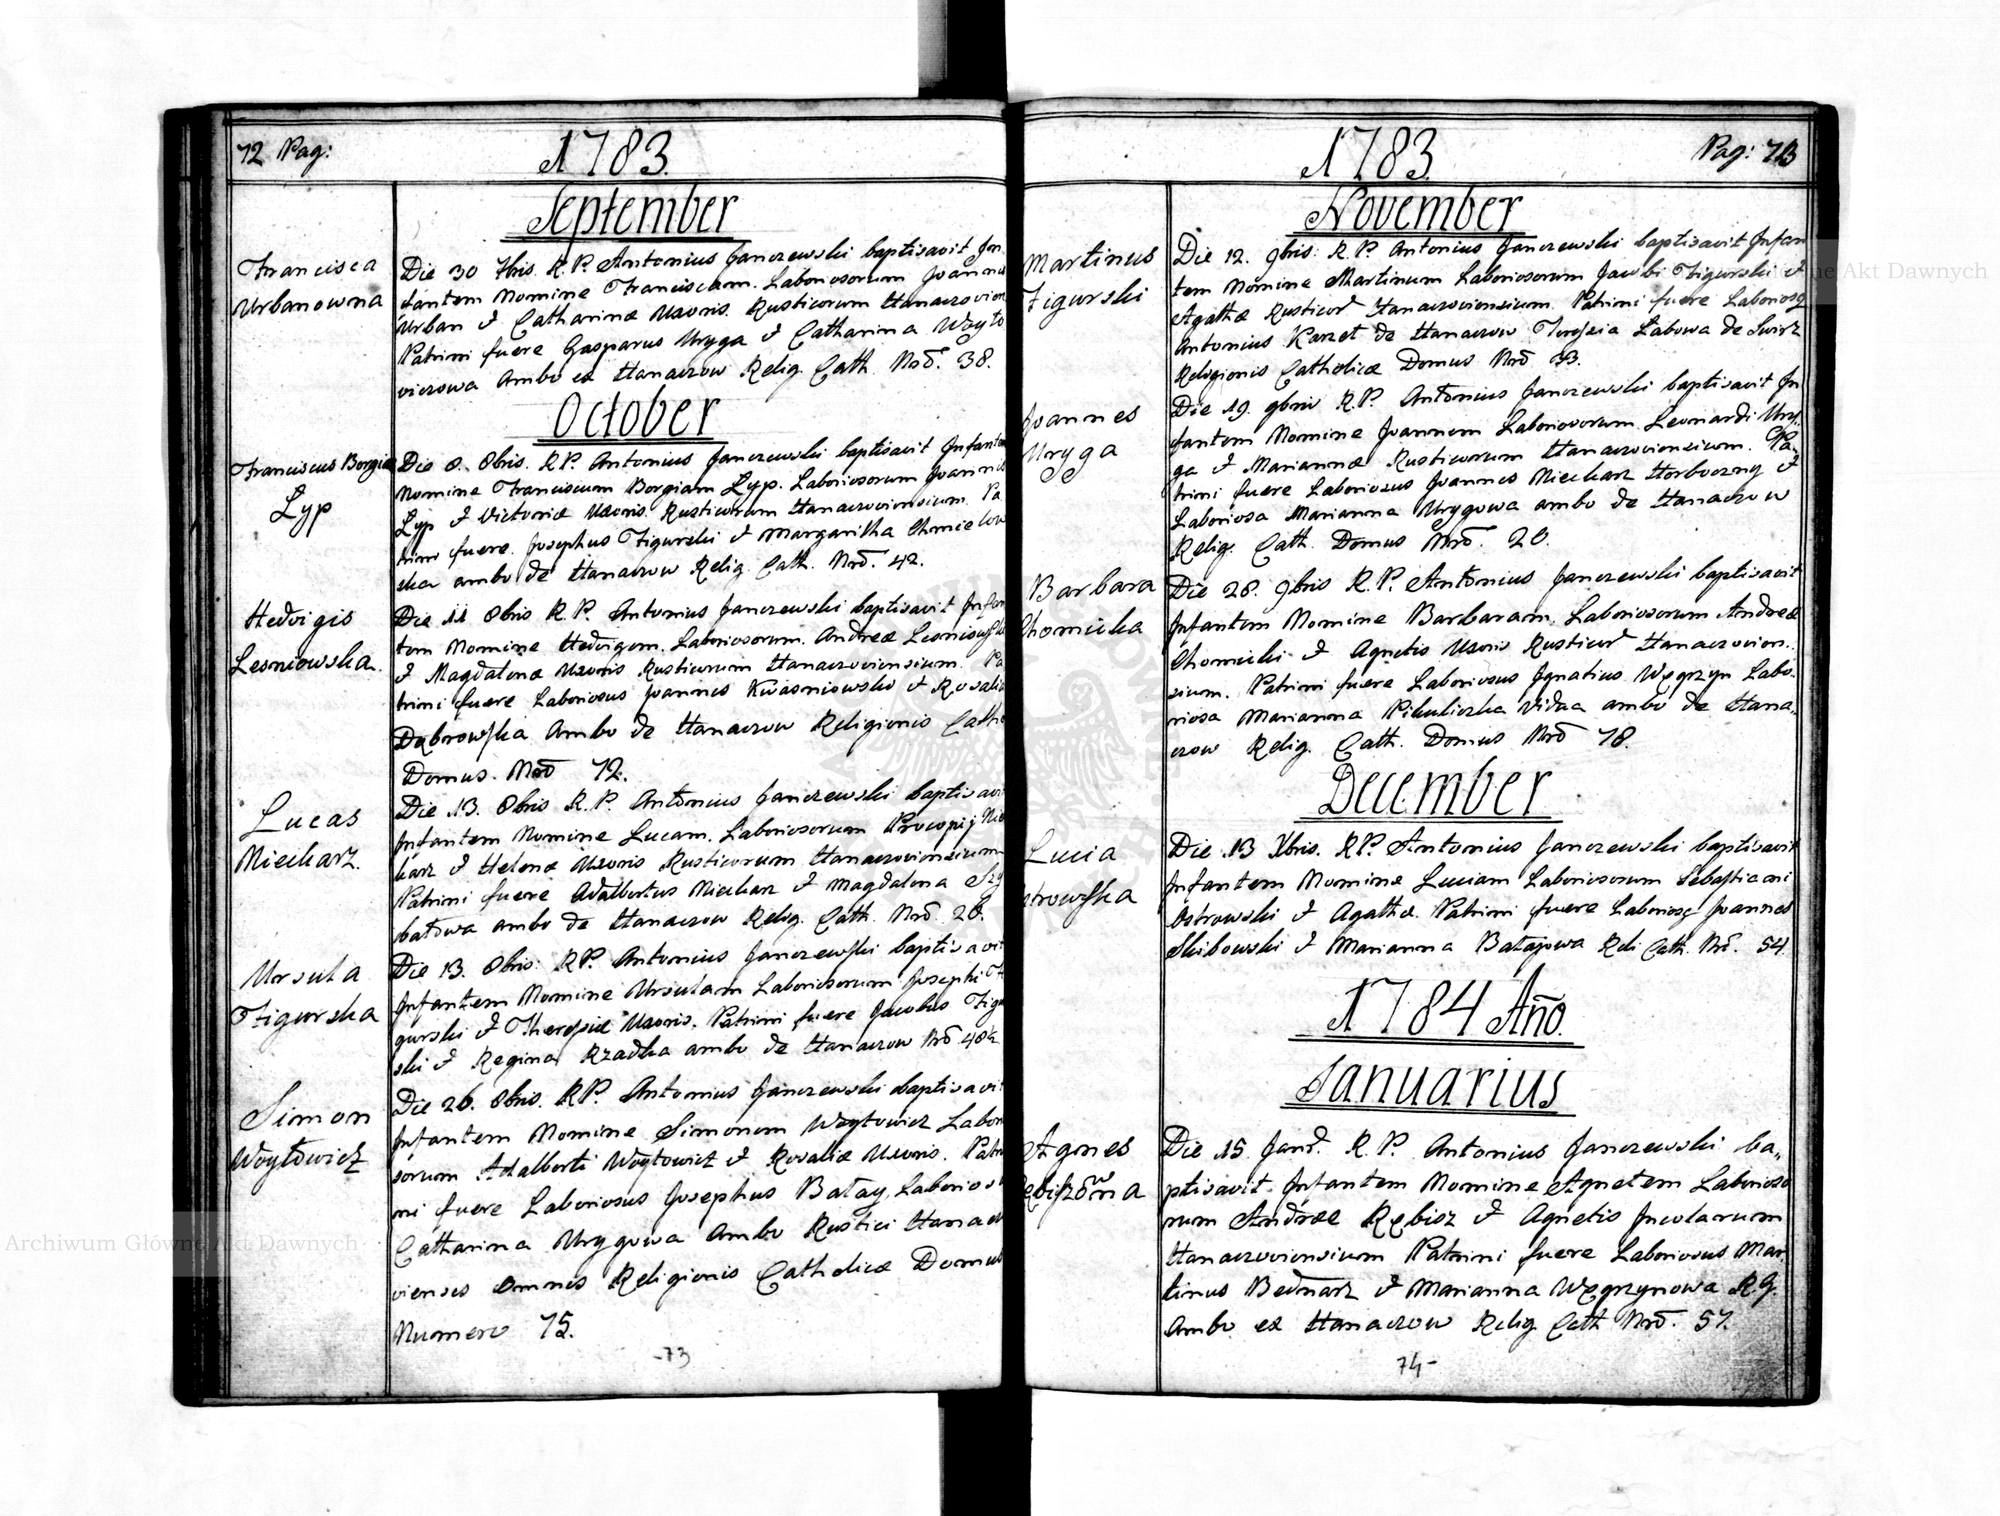 72 Pag:
1783.
September
Francisca
Urbanowna
Die 30 7bris. R. P. Antonius Janczewski baptisavit In
fantem Nomine Franciscam. Laboriosorum Joannis
Urban & Catharinæ Uxoris. Rusticorum Hanaczovien
Patrini fuere Gasparus Uryga & Catharina Woyto
viczowa Ambo ex Hanaczow Relig. Cath. Nrõ. 38.
October
Franciscus Borgia
Lyp
Die 8. 8bris. R.P. Antonius Janczewski baptisavit Infantem
Nomine Franciscum Borgiam Lyp. Laboriosorum Joannis
Lyp & Victoriæ Uxoris. Rusticorum Hanaczoviensium. Pa
trini fuere. Josephus Figurski & Margaritha Chmielow
ska ambo de Hanaczow Relig. Cath. Nrõ. 42.
Hedvigis
Lesniowska.
Die 11 8bris R. P. Antonius Janczewski baptisavit Infan
tem Nomine Hedvigem. Laboriosorum. Andreæ Lesniowski
& Magdalenæ Uxoris Rusticorum Hanaczoviensium. Pa
trini fuere Laboriosus Joannes Kwasniowski & Rosalia
Dąbrowska Ambo de Hanaczow Religionis Catho
Domus. Nrõ 72.
Lucas
Nieckarz
Die 13. 8bris R. P. Antonius Janczewski baptisavit
Infantem Nomine Lucam. Laboriosorum Procopij Nie
karz & Helenæ Uxoris Rusticorum Hanaczoviensium
Patrini fuere Adalbertus Nieckarz & Magdalena Szy
batowa ambo de Hanaczow Relig. Cath. Nrõ. 28.
Ursula
Figurska
Die 13. 8bris. R.P. Antonius Janczewski baptisavit
Infantem Nomine Ursulam Laboriosorum Josephi Fi
gurski & Theresiæ Uxoris. Patrini fuere Jacobus Figu
ski & Regina Rzadka ambo de Hanaczow Nrõ 48½
Simon
Woytowicz
Die 26. 8bris. R.P. Antonius Janczewski baptisavit
Infantem Nomine Simonem Woytowicz Labori
sorum Adalberti Woytowicz & Rosaliæ Uxoris. Patri
ni fuere Laboriosus Josephus Batay, Laboriosa
Catharina Urygowa Ambo Rustici Hanaczo
vienses Omnes Religionis Catholicæ Domus
Numero 75.
-73
1783.
Pag: 73
November
Martinus
Figurski
Die 12. 9bris. R. P. Antonius Janczewski baptisavit Infan
tem Nomine Martinum Laboriosorum Jacobi Figurski &
Agathæ Rusticor Hanaczoviensium. Patrini fuere Laborios9
Antonius Karzet de Hanaczow Teresia Labowa de Swirz
Religionis Catholicæ Domus Nrõ 33.
Joannes
Uryga
Die 19. 9bris R.P. Antonius Janczewski baptisavit In
fantem Nomine Joannem Laboriosorum Leonardi Ury
ga & Mariannæ Rusticorum Hanaczoviensium. Pa
trini fuere Laboriosus Joannes Nieckarz Horboczny &
Laboriosa Marianna Urygowa ambo de Hanaczow
Relig. Cath. Domus Nrõ. 20.
Barbara
Chomicka
Die 28. 9bris R. P. Antonius Janczewski baptisavit
Infantem Nomine Barbaram. Laboriosorum Andreæ
Chomicki & Agnetis Uxoris Rusticor Hanaczovien
sium. Patrini fuere Laboriosus Ignatius Węgrzyn Labo
riosa Marianna Pikuliczka Vidua ambo de Hana„
czow Relig. Cath. Domus Nrõ 78.
December
Lucia
strowska
Die 13 Xbris. R.P. Antonius Janczewski baptisavit
Infantem Nomine Luciam Laboriosorum Sebastiani
Ostrowski & Agathæ. Patrini fuere Laborios9 Joannes
Skibowski & Marianna Batajowa Reli Cath. Nrõ. 54.
1784 Año.
Januarius
Agnes
Rębiszowna
Die 15 Janr. R. P. Antonius Janczewski ba„
ptisavit. Infantem Nomine Agnetem Laborioso
rum Andreæ Rębisz & Agnetis Incolarum
Hanaczoviensium Patrini fuere Laboriosus Mar
tinus Bednarz & Marianna Węgrzynowa RG.
Ambo ex Hanaczow Relig Cath Nrõ. 57.
74-
Archiwum Główne Akt Dawnych